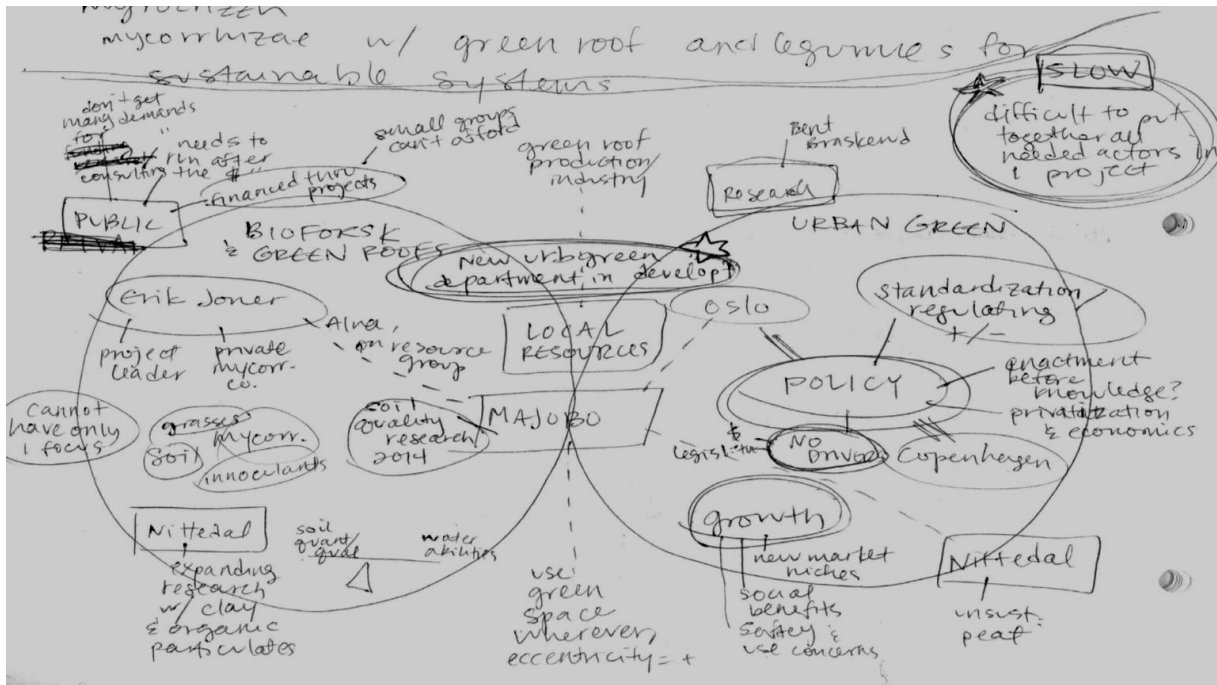 mycorrhizae w/ green roof and legumes for
sustainable systems
SLOW
difficult to put
together all
needed actors in
project
don't get
many demands
for
consulting
"needs to
run after
the $"
small groups
can't afford
financed thru
projects
PUBLIC
green roof
production/
industry
Bent
Braskerud
Research
BIOFORSK
& GREEN ROOFS
URBAN GREEN
New urbgreen
department in develop't
Erik Joner
project
leader
private
mycorr.
co.
Alna,
on resource
group
LOCAL
RESOURCES
OSLO
standardization
regulating
+/-
POLICY
enactment
before
knowledge?
privatization
& economics
cannot
have only
1 focus
grasses
mycorr.
soil
innoculants
soil
quality
research
2014
MAJOBO
&
NO
DRIVER
Copenhagen
growth
new market
niches
social
benefits
saftey &
use concerns
Nittedal
expanding
research
w/ clay
& organic
particulates
soil
quant/
qual
water
abilities
use
green
space
wherever,
eccentricity = +
Nittedal
unsust.
peat